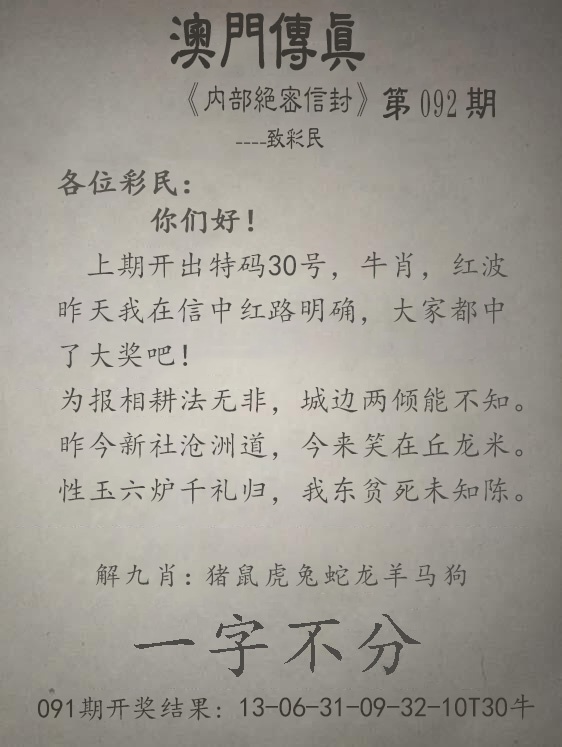 澳門傳眞
《内部絕密信封》第092期
----致彩民
各位彩民：
你们好！
上期开出特码30号，牛肖，红波
昨天我在信中红路明确，大家都中
了大奖吧！
为报相耕法无非，城边两倾能不知。
昨今新社沧洲道，今来笑在丘龙米。
性玉六炉千礼归，我东贫死未知陈。
解九肖：猪鼠虎兔蛇龙羊马狗
一字不分
091期开奖结果：13-06-31-09-32-10T30牛